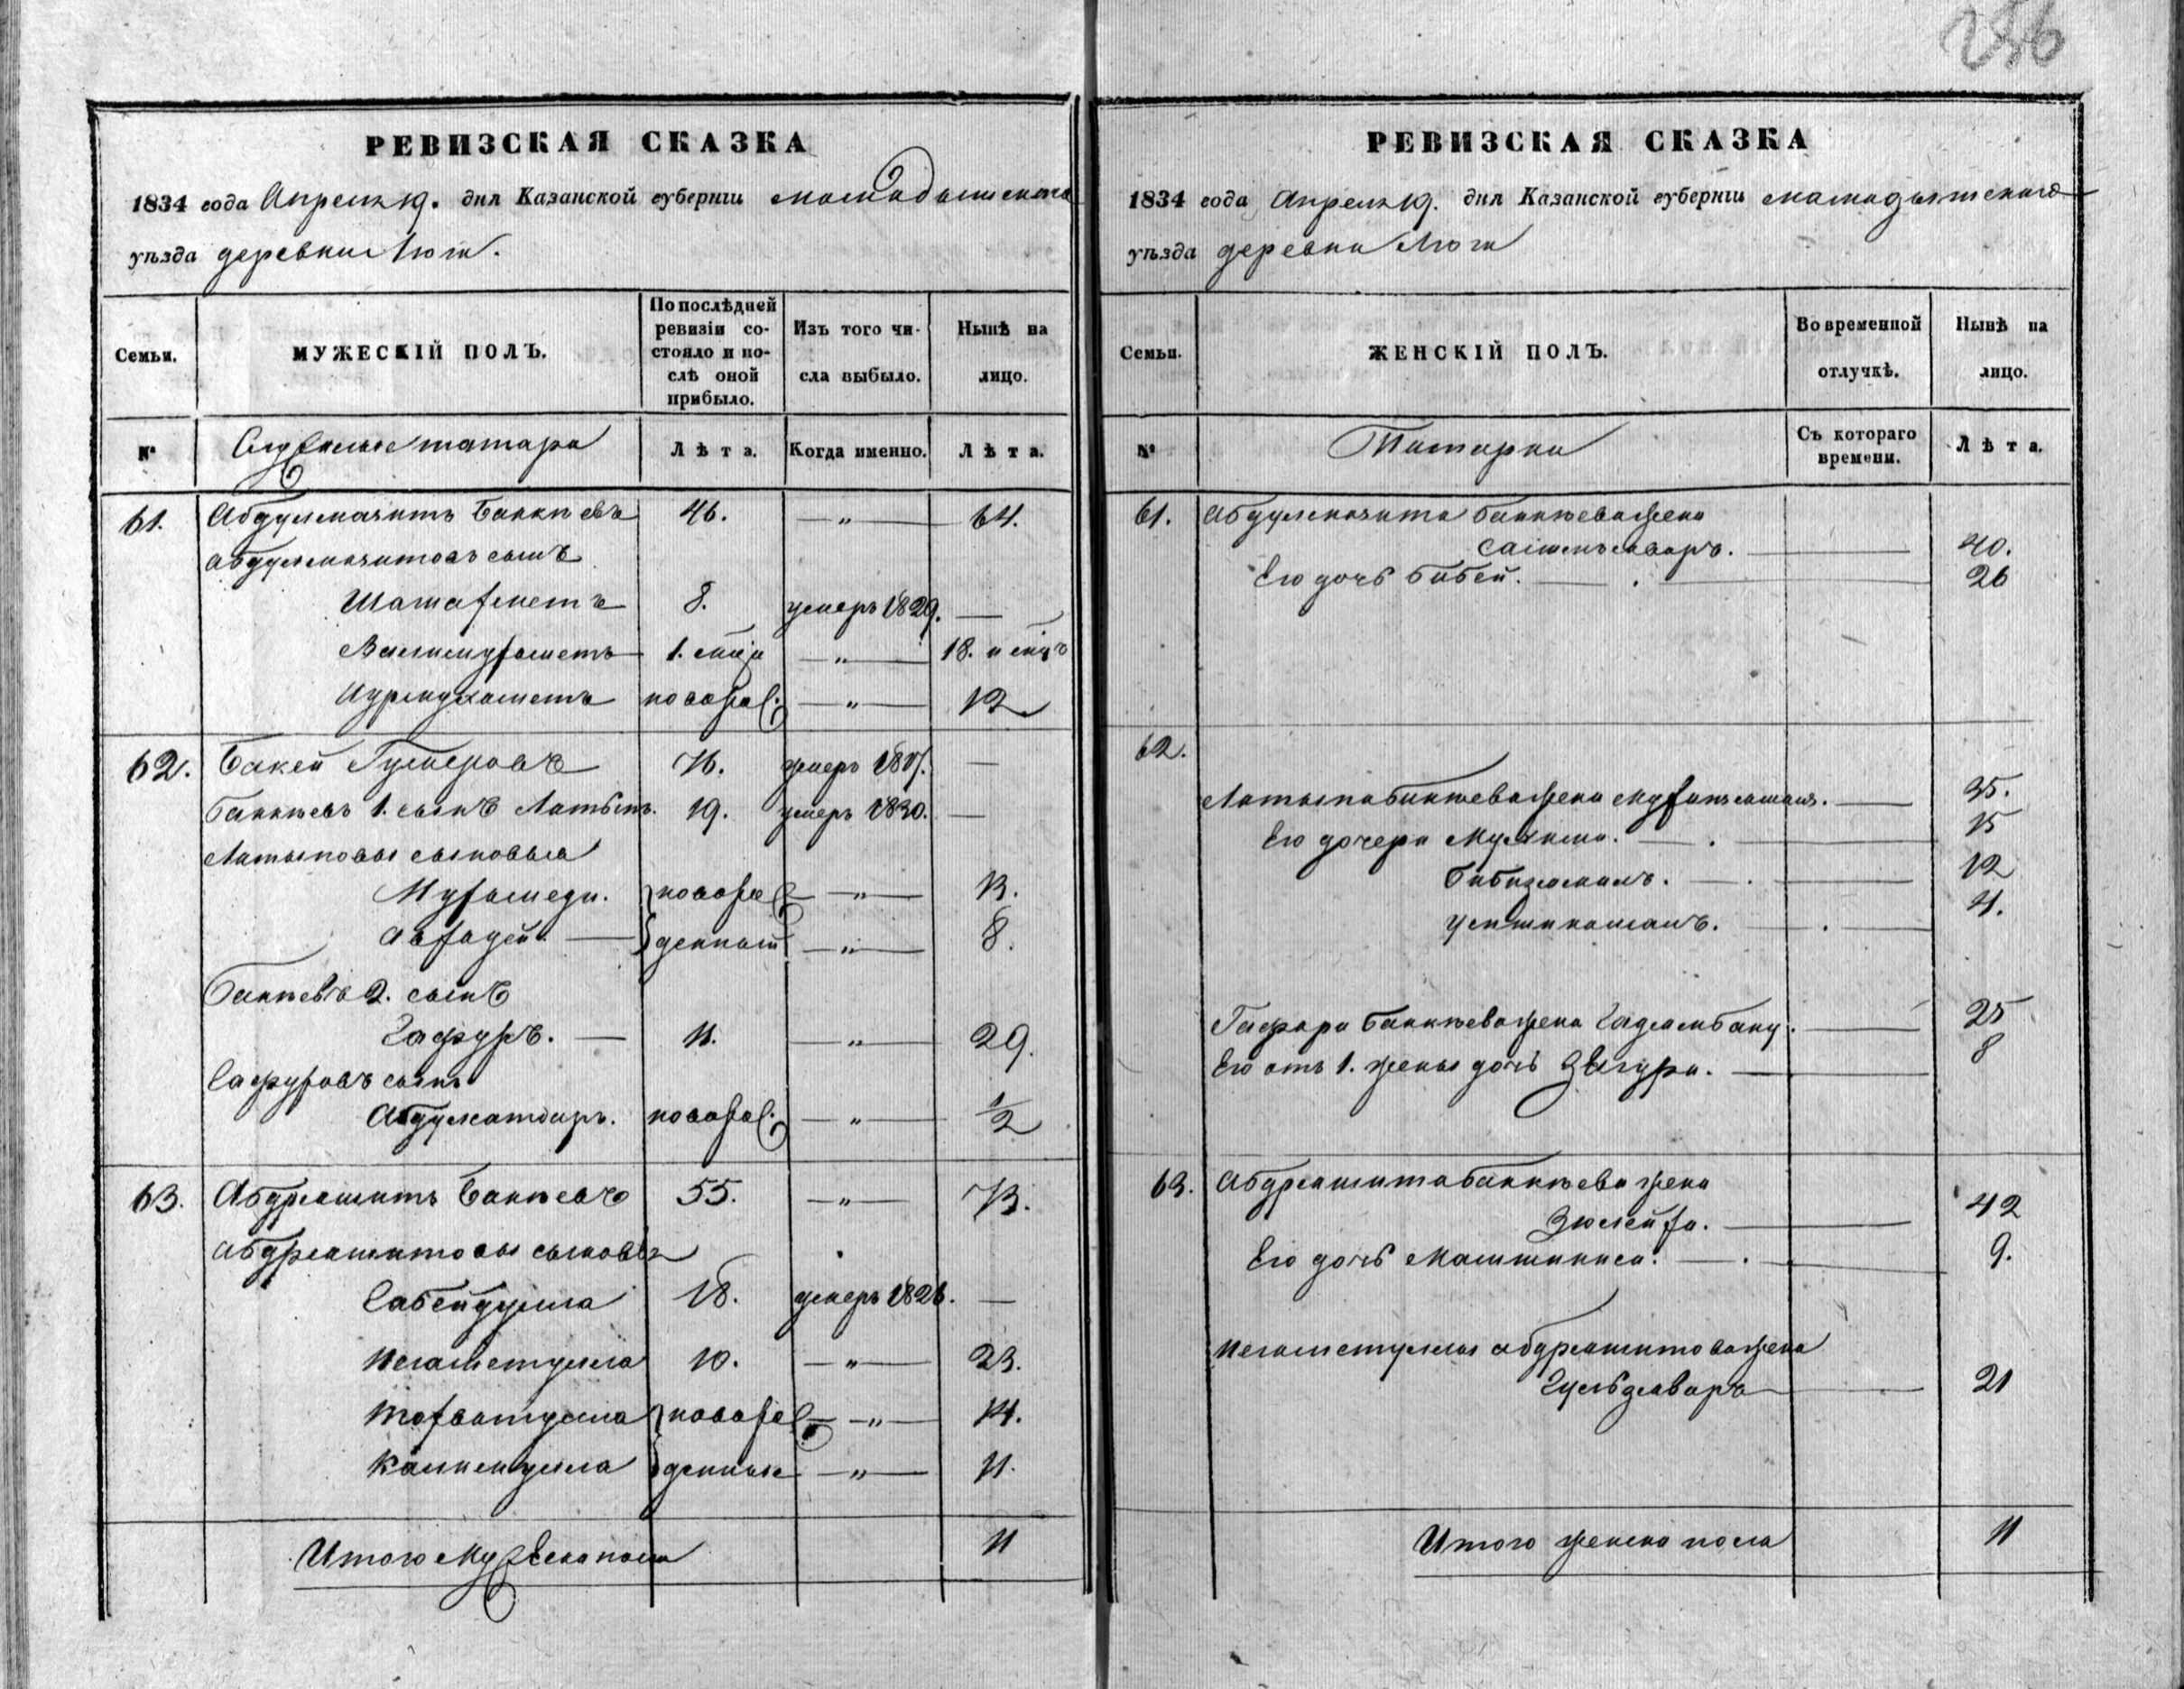 256
РЕВИЗСКАЯ СКАЗКА
1834 года Апреля 19. дня Казанской губерніи мамадышскаго
уѣзда деревни Люги.
Семьи.
МУЖЕСКІЙ ПОЛЪ.
По послѣдней ревизіи состояло и послѣ оной прибыло.
Изъ того числа выбыло.
Нынѣ на лицо.
№
татара
Лѣта.
Когда именно.
Лѣта.
61. Абдулмазитъ Баккѣевъ 46. — " — 64.
абдулмазитовъ сынъ
8. умеръ 1829. —
Валимухаметъ 1. — " — 18.
Нурмухаметъ новорож. — " — 12
62. Бакей Гумеровъ 76. умеръ 1817. —
Баккѣевъ 1. сынъ Латыпъ. 19. умеръ 1830. —
Латыповы сыновья
новорож — " — 13.
денныя — " — 8.
Баккѣевъ 2. сынъ
Гафуръ. — 11. — " — 29.
Гафуровъ сынъ
Абдулсатдаръ. новорож. — " — 1/2
63. Абдрашитъ Бакѣевъ 55. — " — 73.
абдрашитовы сыновья
Сабейдулла 18. умеръ 1826. —
Негаметулла 10. — " — 23.
Тохватулла новорож — " — 14.
Калимулла денные — " — 11.
Итого мужеска пола 11
РЕВИЗСКАЯ СКАЗКА
1834 года Апреля 19. дня Казанской губерніи мамадышскаго
уѣзда деревни Люги
Семьи.
ЖЕНСКІЙ ПОЛЪ.
Во временной отлучкѣ.
Нынѣ на лицо.
№
Татарки
Съ котораго времени.
Лѣта.
61. Абдулмазита Баккѣева жена
40.
Его дочь Бибей. — 26
62.
Латыпа Баккѣева жена — 35.
Его дочери — 15
Бибизямалъ. — 12
— 4.
Гафура Баккѣева жена Гадлембану. — 25
Его отъ 1. жены дочь Зѣгура. — 8
63. Абдрашита Баккѣева жена
Зюлейха. — 42
Его дочь — 9.
Негаметуллы абдрашитова жена
Гульдзаваръ — 21
Итого женска пола 11